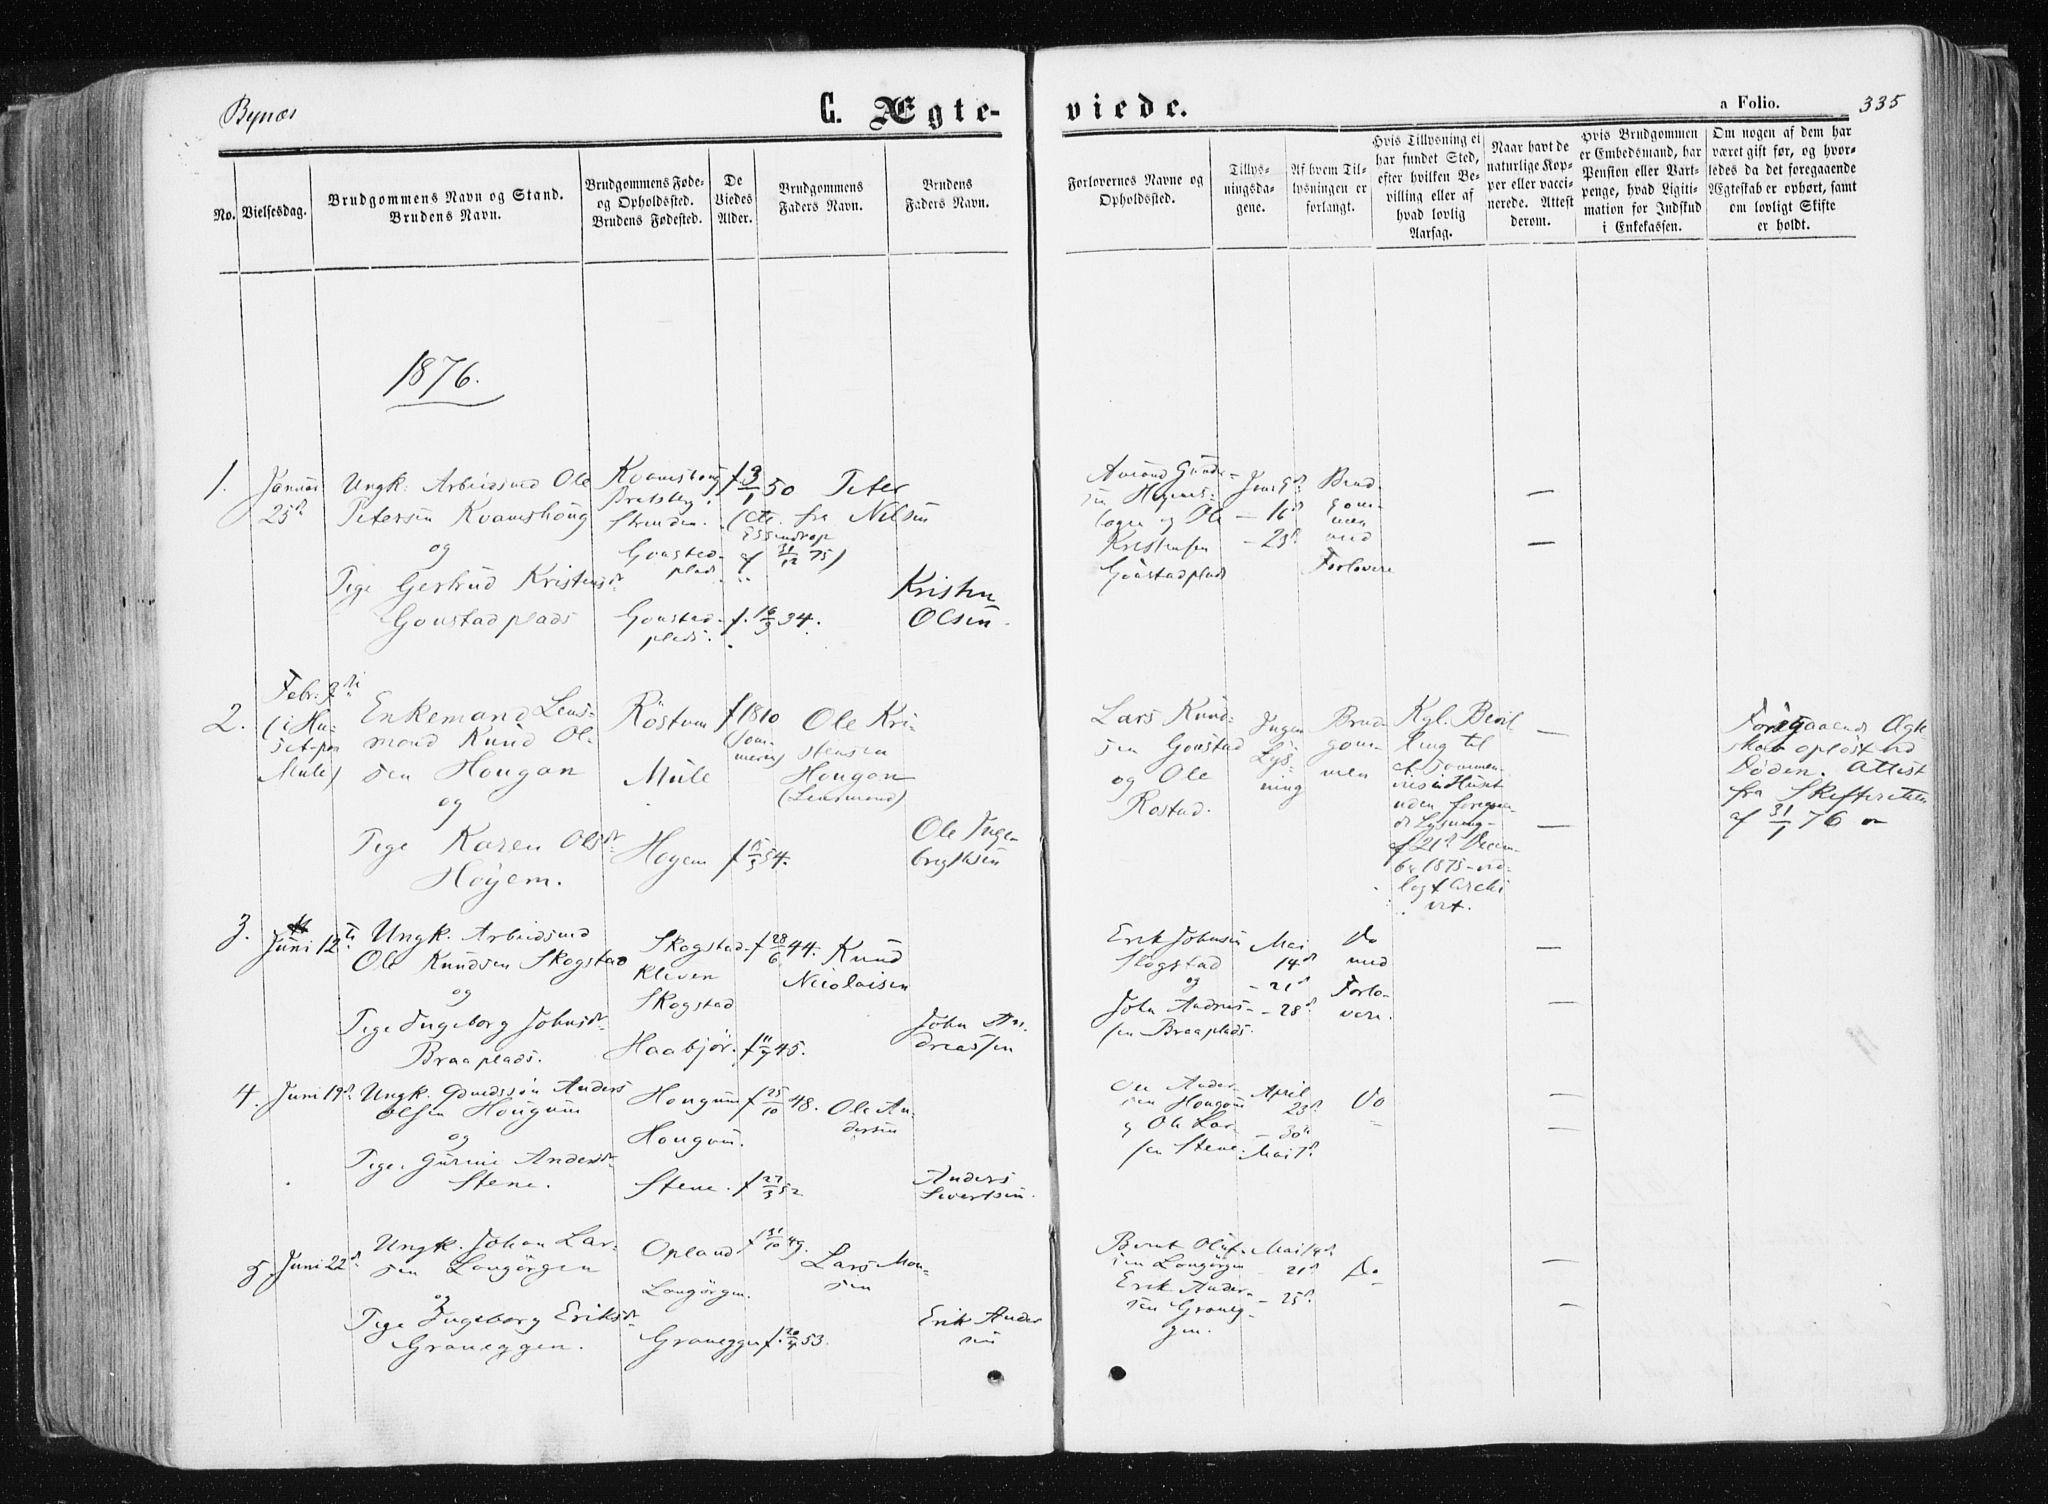 Bynæs
G. Ægte-
viede.
a Folio.
335
No.
Vielsesdag.
Brudgommens Navn og Stand.
Brudens Navn.
Brudgommens Føde-
og Opholdssted.
Brudens Fødested.
De
Viedes
Alder.
Brudgommens
Faders Navn.
Brudens
Faders Navn.
Forlovernes Navne og
Opholdssted.
Tillys-
ningsda-
gene.
Af hvem Til-
lysningen er
forlangt.
Hvis Tillysning ei
har fundet Sted,
efter hvilken Be-
villing eller af
hvad lovlig
Aarsag.
Naar havt de
naturlige Kop-
per eller vacci-
nerede. Attest
derom.
Hvis Brudgommen
er Embedsmand, har
Pension eller Vart-
penge, hvad Ligiti-
mation for Indskud
i Enkekassen.
Om nogen af dem har
været gift før, og hvor-
ledes da det foregaaende
Ægteskab er ophørt, samt
om lovligt Skifte
er holdt.
1876.
1.
Januar
25d
Ungk. Arbeidsmd Ole
Petersen Kvamshoug
og
Pige Gertrud Kristensdr
Goustadplads
Kvamshoug
Strinden.
Goustad-
plads
Goustad-
plads.
f. 3/1 50
(Att. fra
af 31/12 75)
f. 16/3 34.
Peter
Nilsen
Kristen
Olsen.
sen
og Ole
Kristensen
Goustadplads
Jan 9d
— 16d
— 23d
Brud
gom-
men
med
Forlovere
—
—
2.
Febr.
(i Hu-
set paa
Mule)
Enkemand Lens-
mand Knud Ol-
sen Hougan
og
Pige Karen Olsdr
Höyem.
Röstum
Mule
Hoyem
f 1810
(Som-
meren)
54.
Ole Kri-
stensen
Hougan
(Lensmand)
Ole Inge-
brigtsen
Lars Knud-
sen Goustad
og Ole
Rostad.
Ingen
Lys-
ning
Brud-
gom-
men
Kgl. Bevil
ling til
at sammen-
vies i Huset
uden foregaaen-
de Lysning
af 21d Decem-
ber 1875 ved-
lagt Archi
vet.
—
—
Foregaaende Ægte
skab oplöst ved
Döden. Attest
fra Skifteretten
af 31/1 76
3.
Juni 12te
Ungk. Arbeidsmd
Ole Knudsen Skogstad
og
Pige Ingeborg Johnsdr
Braaplads.
Skogstad-
kleven
Skogstad
Haabjør.
f 28/6 44.
f 11/7 45.
Knud
Nicolaisen
John An-
dreassen
Erik Johnsen
Skogstad
og
John Andreas-
sen Braaplads.
Mai
14d
— 21d
— 28d
Do
med
Forlo-
vere.
—
—
4.
Juni 19d
Ungk. Gaardssøn Anders
Olsen Hougum
og
Pige. Gurine Andersdr
Stene.
Hougum
Hougum.
Stene.
f 25/10 48.
f 27/3 52
Ole An-
dersen
Anders
Sivertsen.
Ole Ander-
sen Hougum
og Ole Lar-
sen Stene.
April
23d
— 30te
Mai 7d
Do
—
—
5.
Juni 22d
Ungk. Johan Lar-
sen Langörgen
og
Pige Ingeborg Eriksdr
Graneggen.
Opland
Langörgen.
Graneggen
f 31/10 49.
f. 20/4 53.
Lars Mon-
sen
Erik Ander
sen
Bernt Oluf-
sen Langörgen
Erik Ander-
sen Graneg-
gen.
Mai 14d
— 21d
— 25d
Do
—
—